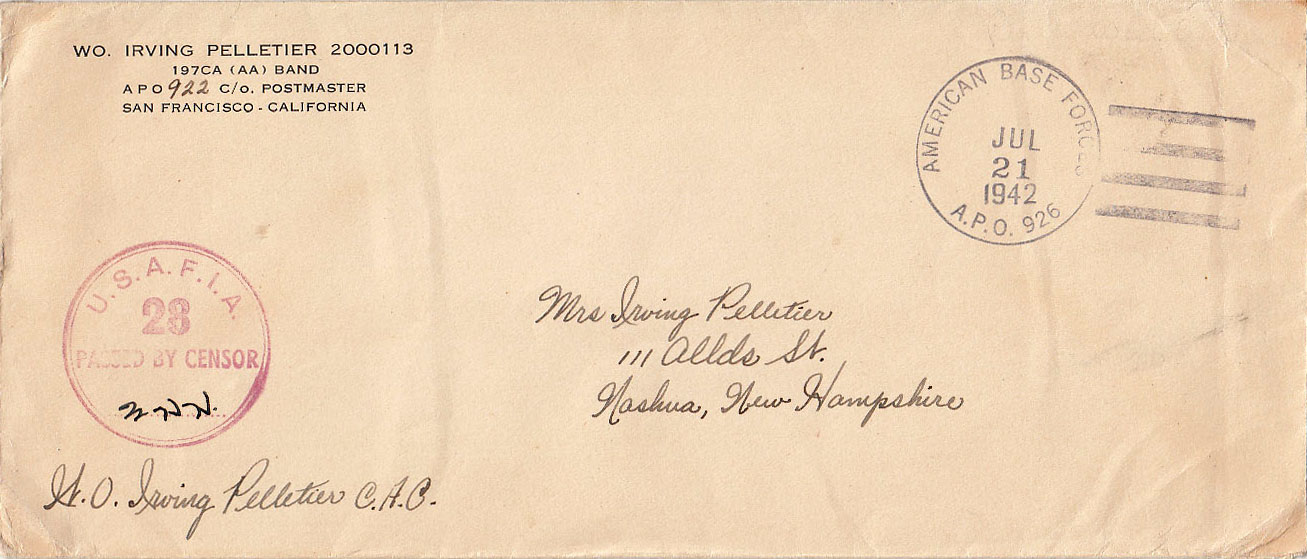 WO. IRVING PELLETIER 2000113
197CA (AA) BAND
APO 922 C/O. POSTMASTER
SAN FRANCISCO - CALIFORNIA
AMERICAN BASE FORCES
JUL
21
1942
A.P.O. 926
U.S.A.F.I.A.
28
PASSED BY CENSOR
Mrs Irving Pelletier
111 Allds St.
Nashua, New Hampshire
W.O. Irving Pelletier C.A.C.